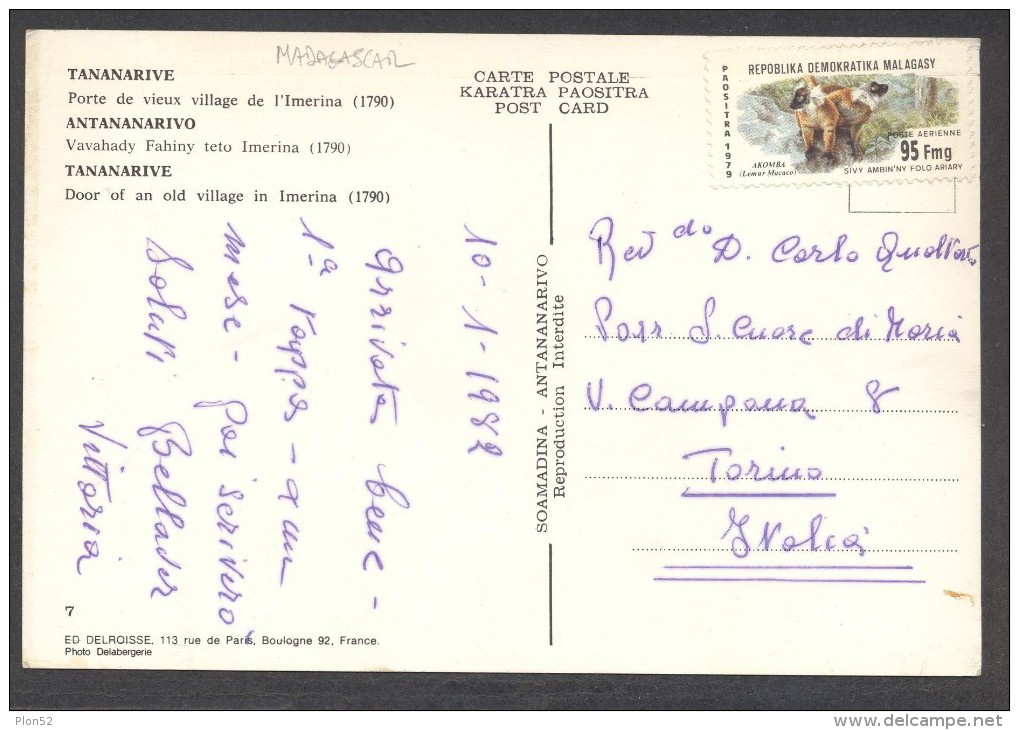 MADAGASCAR
TANANARIVE
Porte de vieux village de l'Imerina (1790)
ANTANANARIVO
Vavahady Fahiny teto Imerina (1790)
TANANARIVE
Door of an old village in Imerina (1790)
CARTE POSTALE
KARATRA PAOSITRA
POST CARD
REPOBLIKA DEMOKRATIKA MALAGASY
PAOSITRA 1979
POSTE AERIENNE
95 Fmg
AKOMBA
(Lemur Macaco)
SIVY AMBIN'NY FOLO ARIARY
10-1-1982
Arrivata bene -
1ª tappa - a un
mese - Poi scriverò
Saluti
Vittoria
SOAMADINA - ANTANANARIVO
Reproduction Interdite
Rev do D. Carlo
Parr S. Cuore di Maria
V. Campana 8
Torino
Italia
7
ED DELROISSE, 113 rue de Paris, Boulogne 92, France.
Photo Delabergerie
Plon52
www.delcampe.net